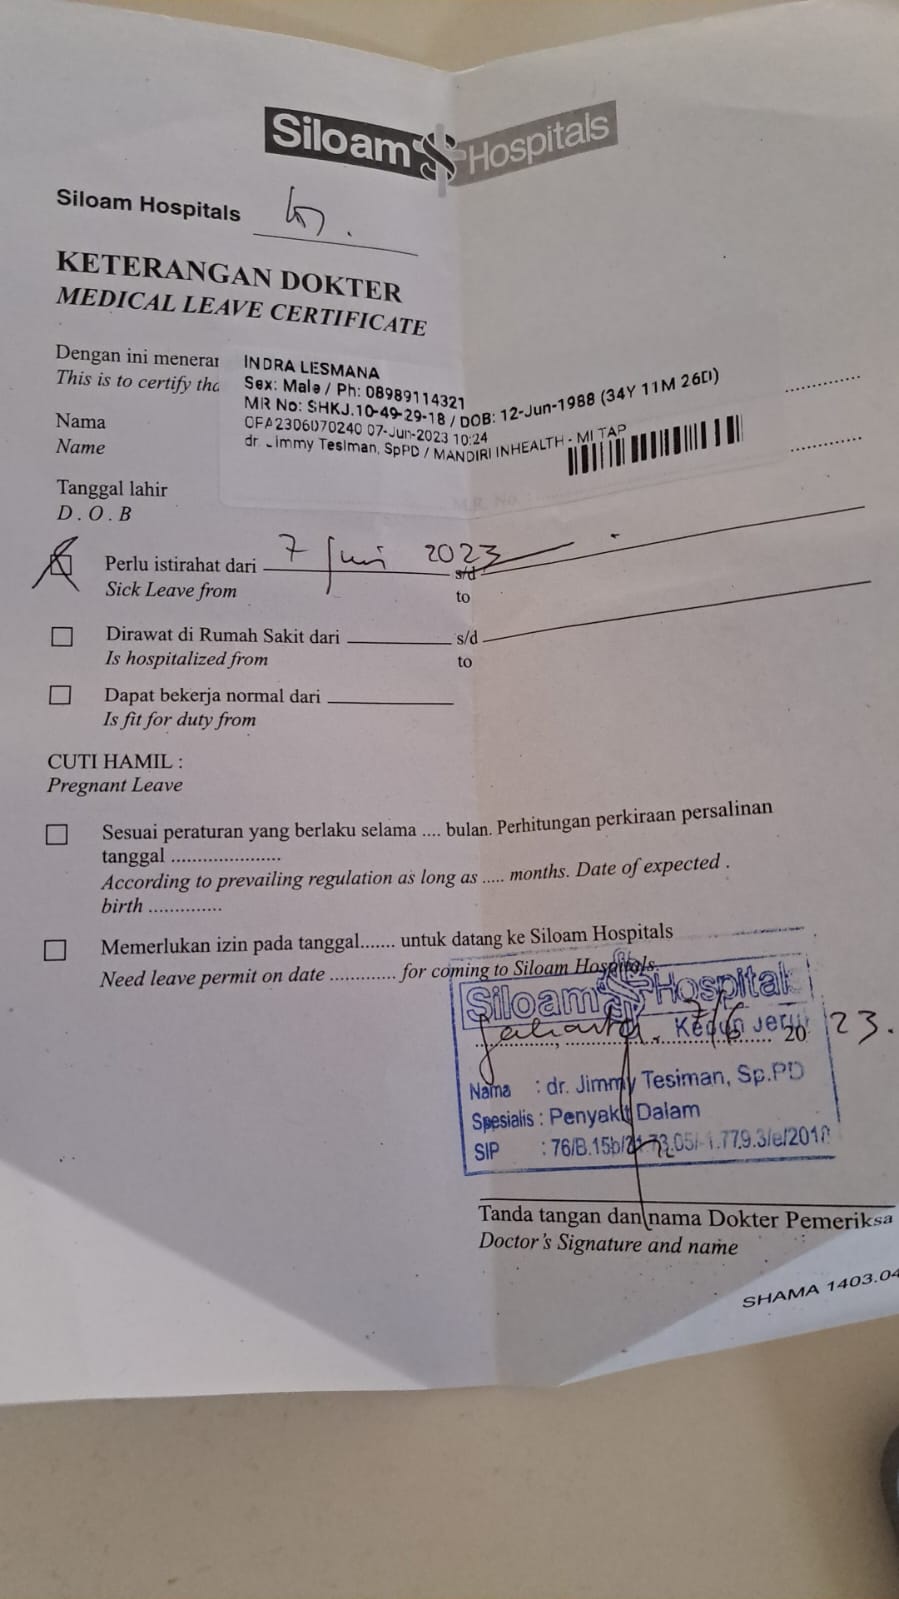 Siloam Hospitals
Siloam Hospitals
KETERANGAN DOKTER
MEDICAL LEAVE CERTIFICATE
Dengan ini menerar
This is to certify tha
INDRA LESMANA
Sex: Male / Ph: 08989114321
MR No: SHKJ.10-49-29-18 / DOB: 12-Jun-1988 (34Y 11M 26D)
OFA2306070240 07-Jun-2023 10:24
dr. Jimmy Tesiman, SpPD / MANDIRI INHEALTH - MI TAP
Nama
Name
M.R. No.
Tanggal lahir
D.O.B
Perlu istirahat dari 7 Juni 2023 s/d
Sick Leave from to
Dirawat di Rumah Sakit dari s/d
Is hospitalized from to
Dapat bekerja normal dari
Is fit for duty from
CUTI HAMIL :
Pregnant Leave
Sesuai peraturan yang berlaku selama .... bulan. Perhitungan perkiraan persalinan
tanggal .....................
According to prevailing regulation as long as ..... months. Date of expected .
birth ..............
Memerlukan izin pada tanggal....... untuk datang ke Siloam Hospitals
Need leave permit on date ............. for coming to Siloam Hospitals.
Siloam Hospitals
Kebun Jeruk
Jakarta, 7/6 2023.
Nama : dr. Jimmy Tesiman, Sp.PD
Spesialis : Penyakit Dalam
SIP
Tanda tangan dan nama Dokter Pemeriksa
Doctor's Signature and name
SHAMA 1403.04